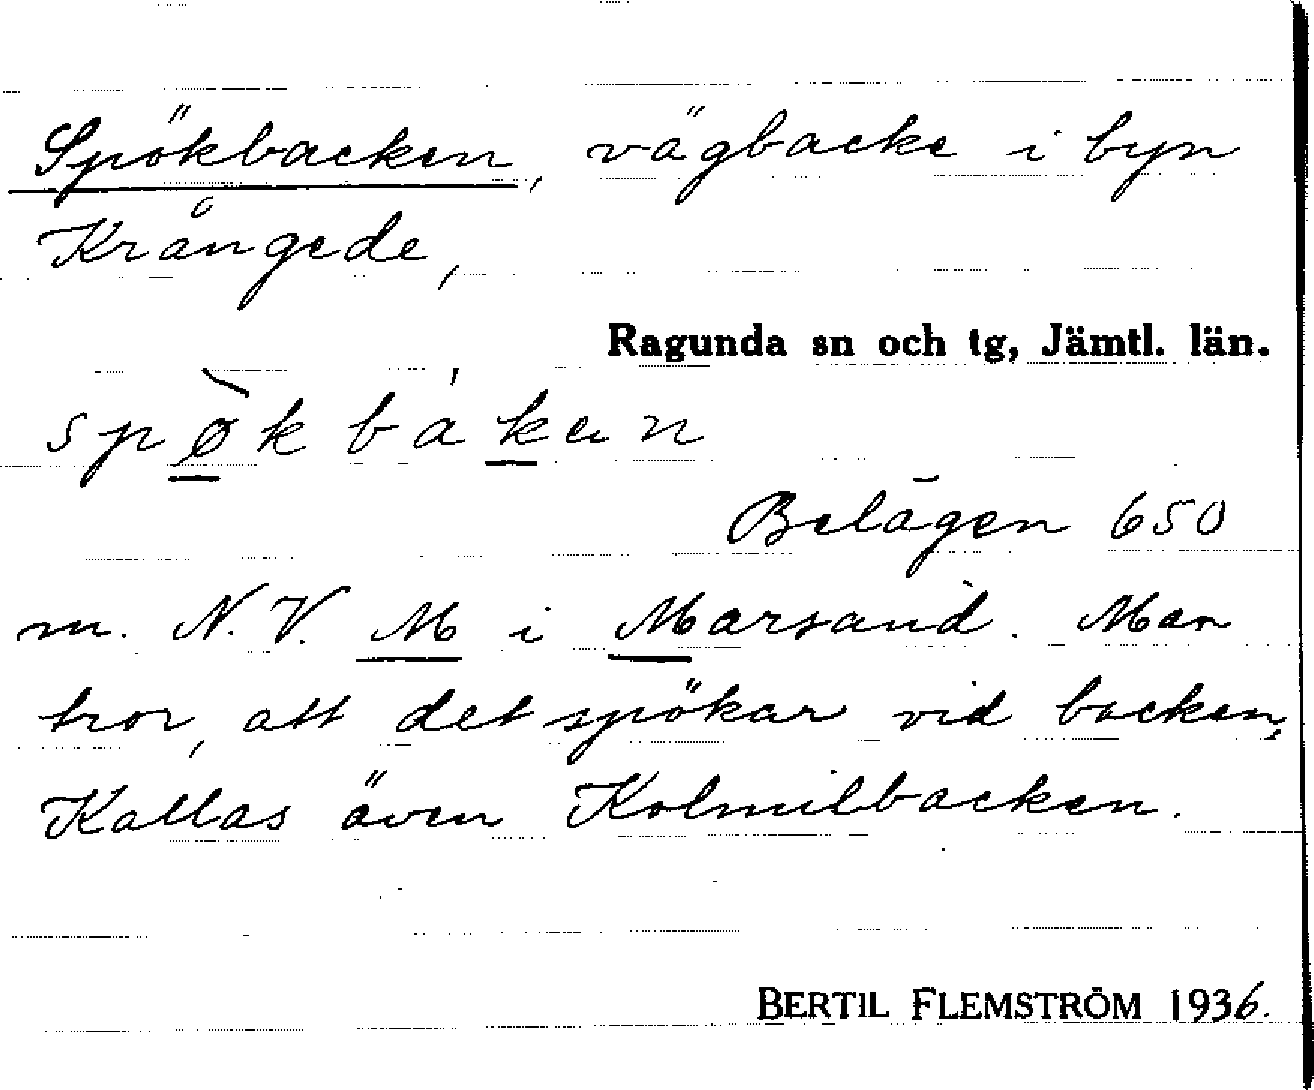 Spökbacken, vägbacke i byn
Krångede,
Ragunda sn och tg, Jämtl. län.
spø̀kbákan
Belägen 650
m. N.V. M i Marsand. Man
tror, att det spökar vid backen,
Kallas även Kolmilbacken.
BERTIL FLEMSTRÖM 1936.